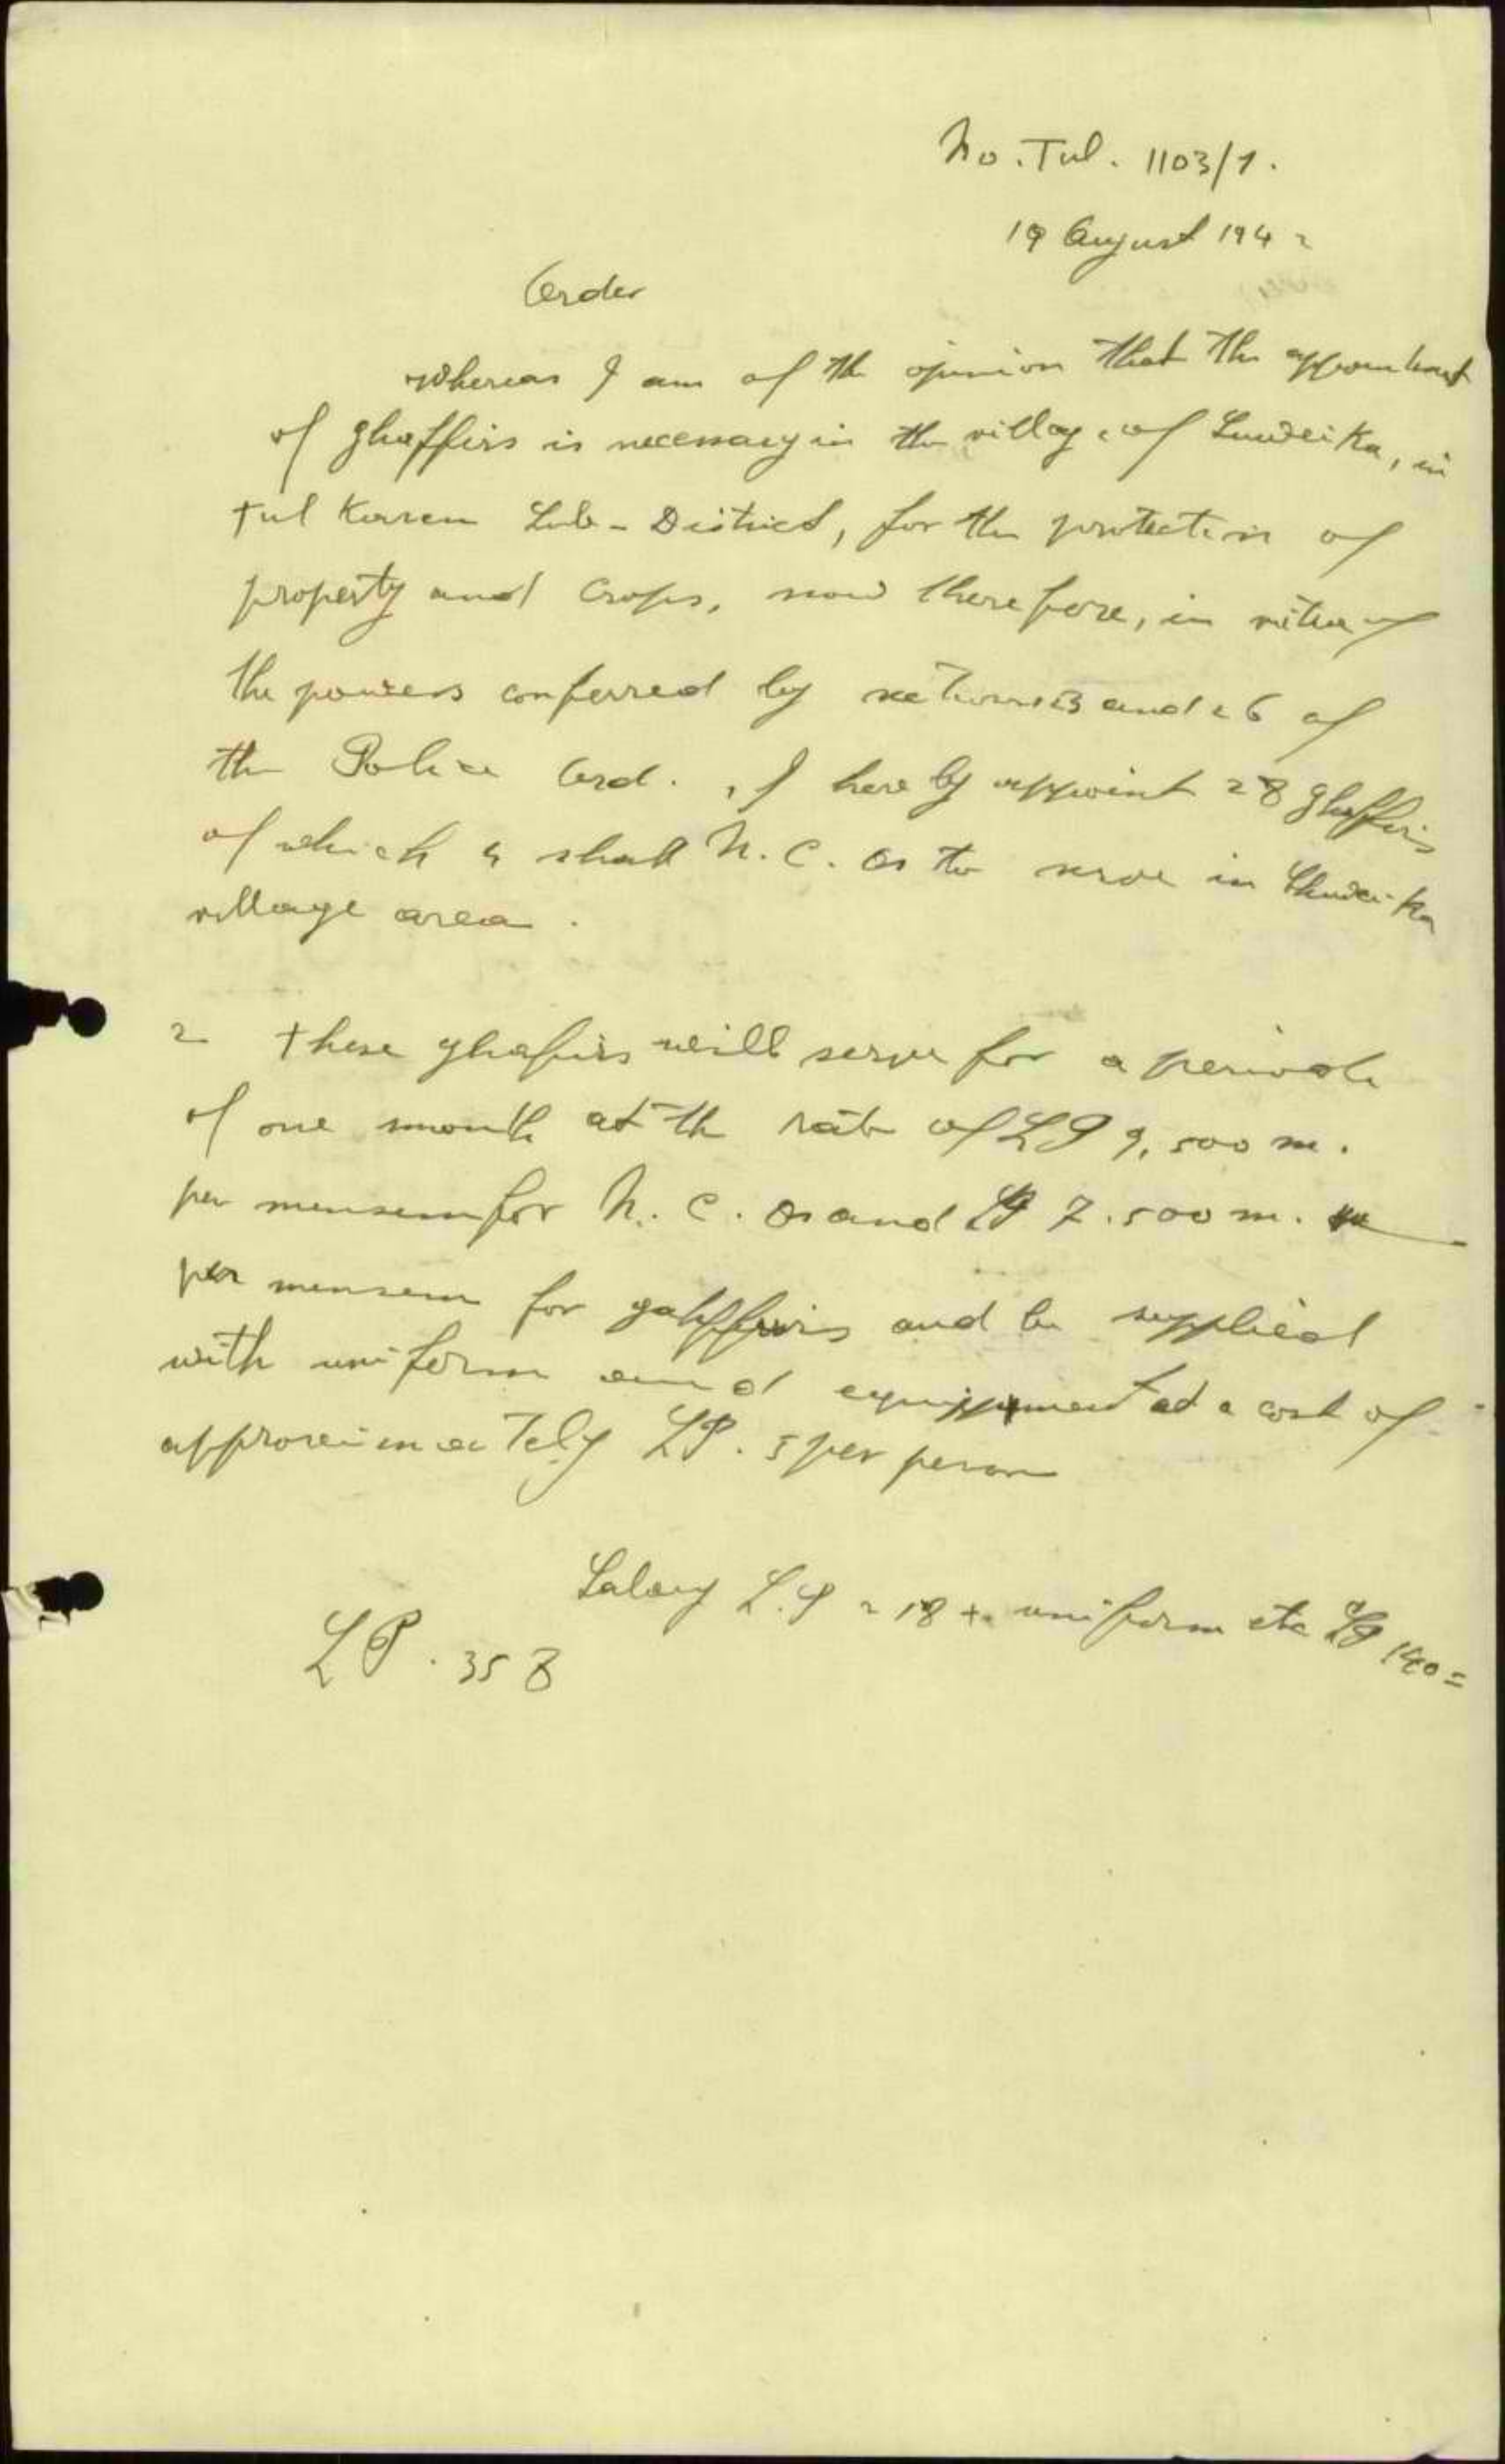 No. Tul. 1103/1.
19 August 1942
Order
Whereas I am of the opinion that the appointment
of ghaffirs is necessary in the village of Suweika, in
Tul Karem Sub-District, for the protection of
property and crops, now therefore, in virtue of
the powers conferred by sections 23 and 26 of
the Police Ord., I hereby appoint 28 ghaffirs
of which 4 shall N.C.Os to serve in Shuweika
village area.
2 These ghafirs will serve for a period
of one month at the rate of LP 9,500 m.
per mensem for N.C.Os and LP 7.500 m.
per mensem for gahffirs and be supplied
with uniform and equipment at a cost of
approximately LP. 5 per person
Salary L.P 218 + uniform etc LP 140 =
LP. 358